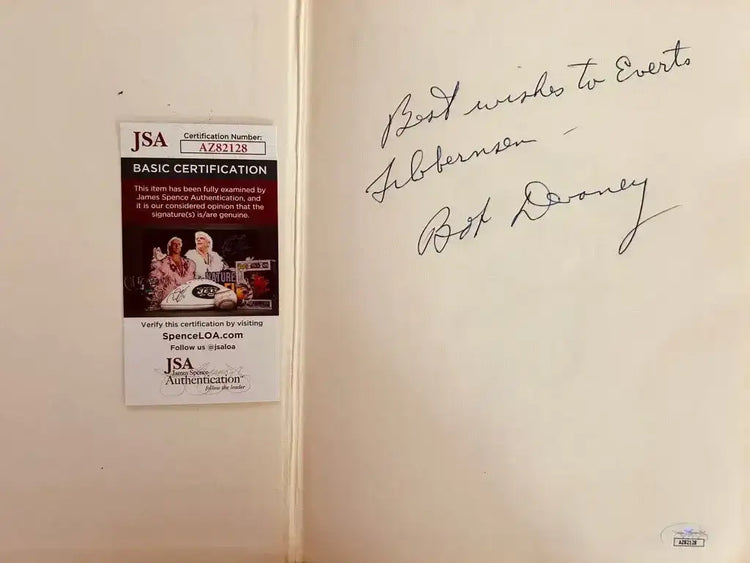 JSA
Certification Number:
AZ82128
BASIC CERTIFICATION
This item has been fully examined by
James Spence Authentication, and
it is our considered opinion that the
signature(s) is/are genuine.
Verify this certification by visiting
SpenceLOA.com
Follow us @jsaloa
JSA
James Spence
Authentication
follow the leader
Best wishes to Everts
Sibbernsen -
Bob Devaney
AZ82128